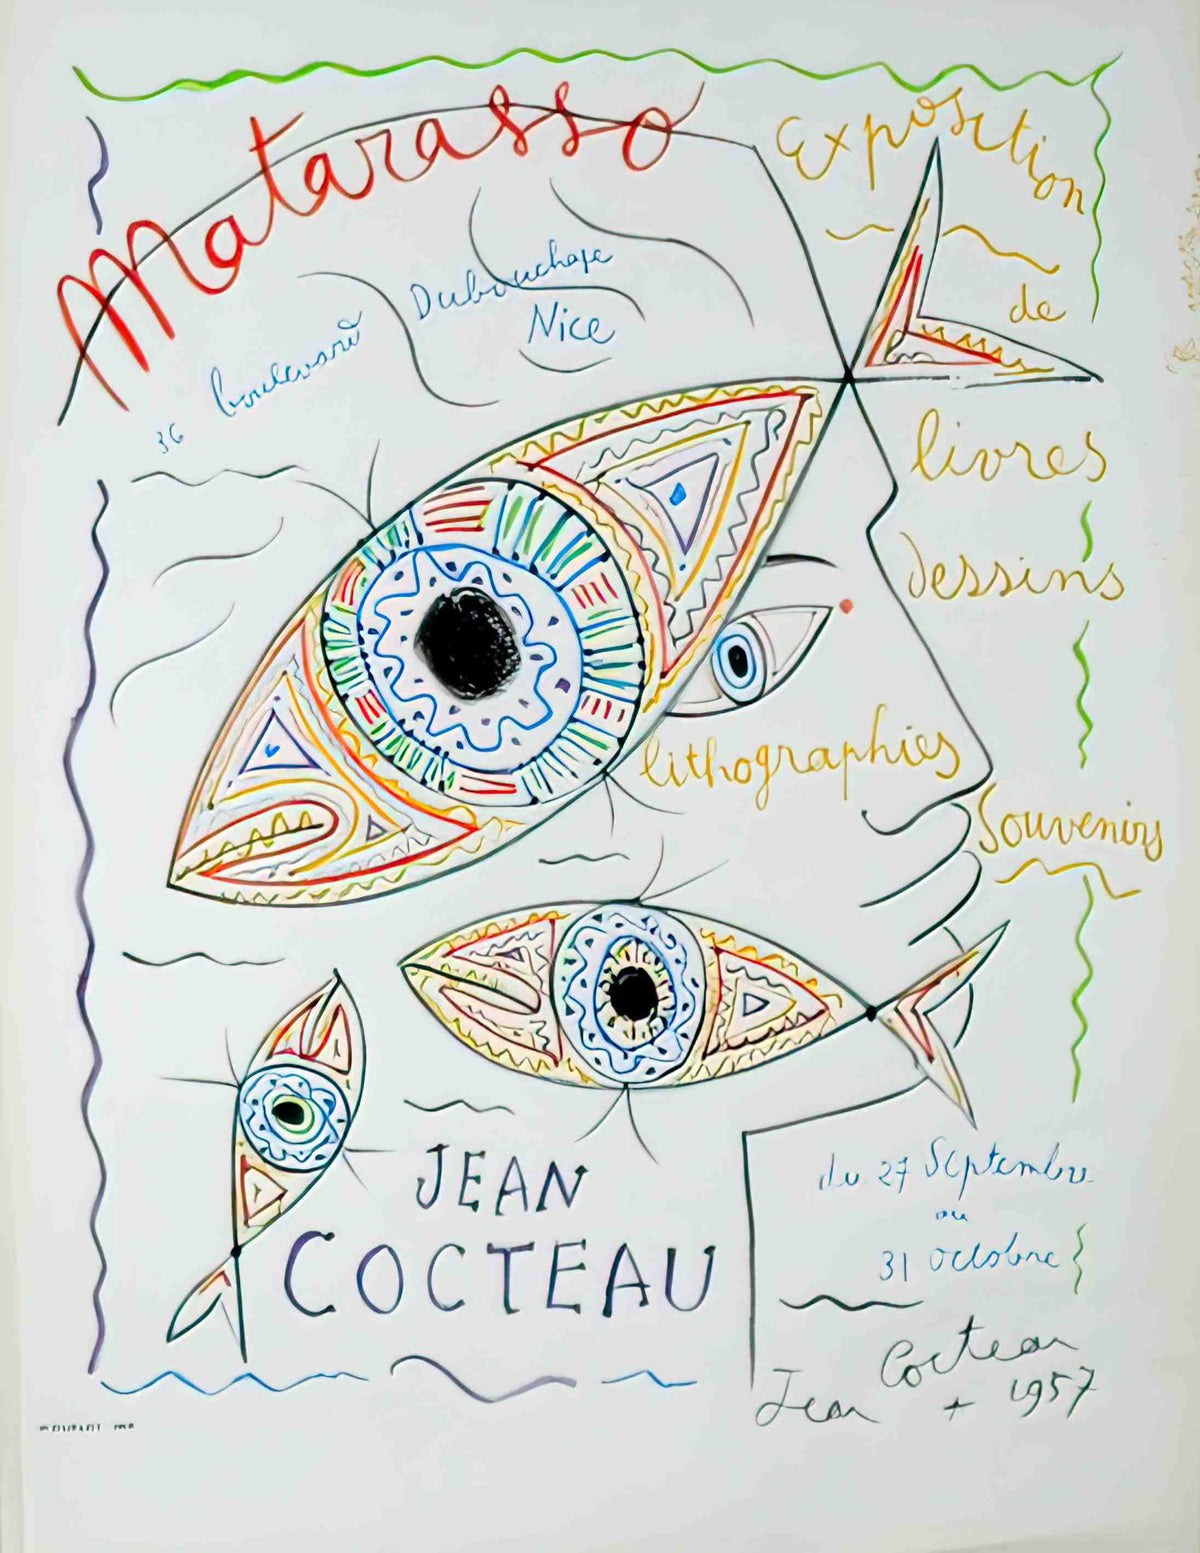 Matarasso
Exposition
de
36 boulevard Dubouchage
Nice
livres
dessins
lithographies
Souvenirs
JEAN
COCTEAU
du 27 Septembre
au
31 octobre
Jean Cocteau
1957